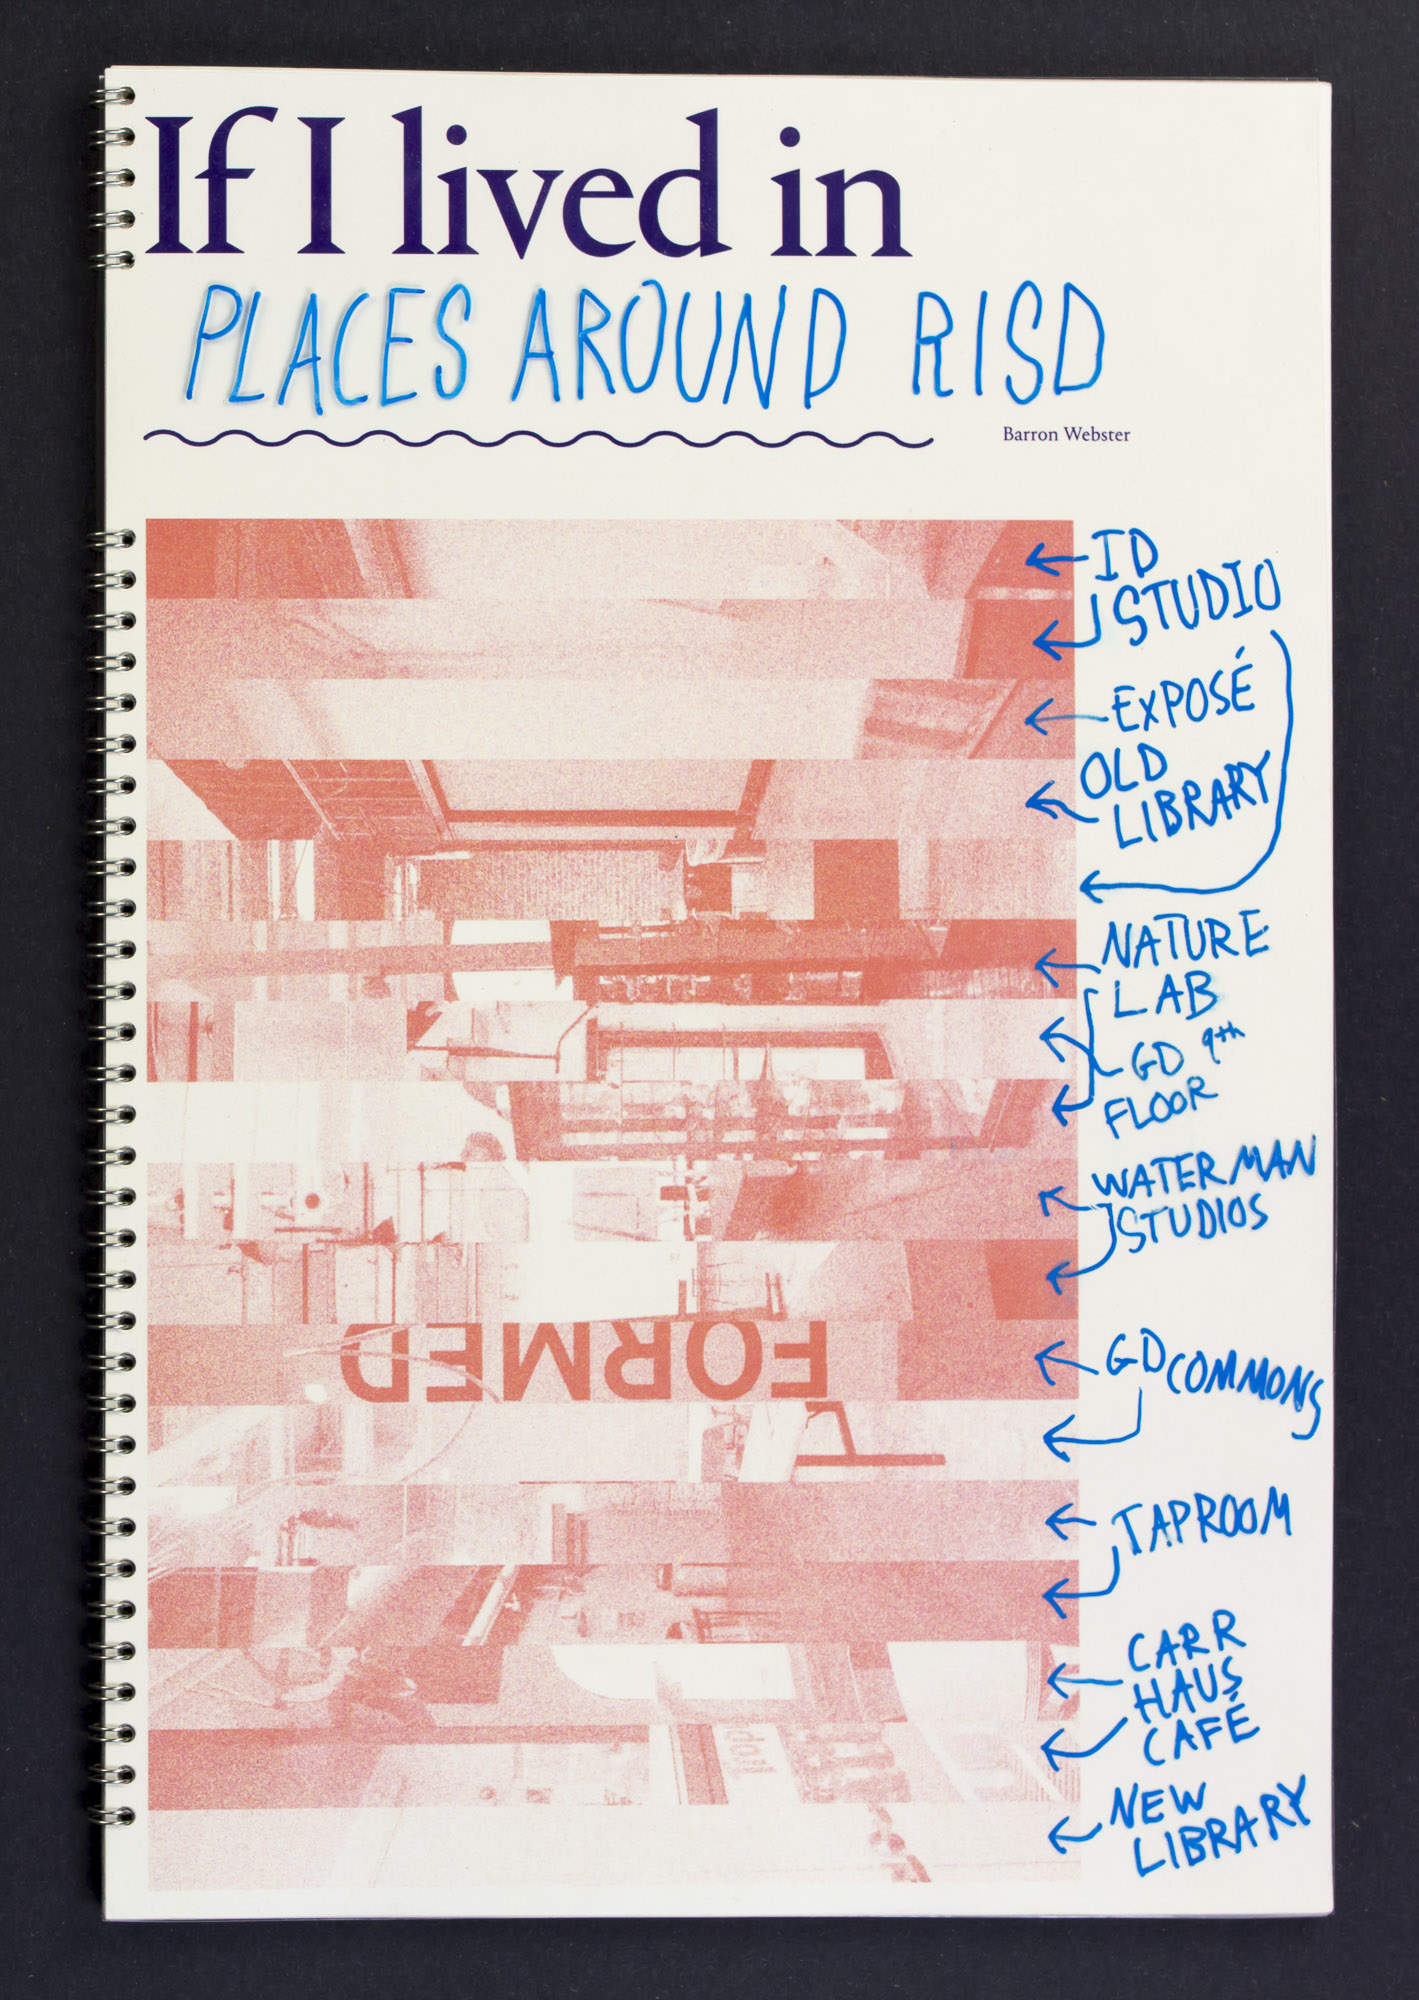 If I lived in
PLACES AROUND RISD
Barron Webster
ID
STUDIO
EXPOSÉ
OLD
LIBRARY
NATURE
LAB
GD 9th
FLOOR
WATERMAN
STUDIOS
FORMED
GD COMMONS
TAPROOM
CARR
HAUS
CAFÉ
NEW
LIBRARY